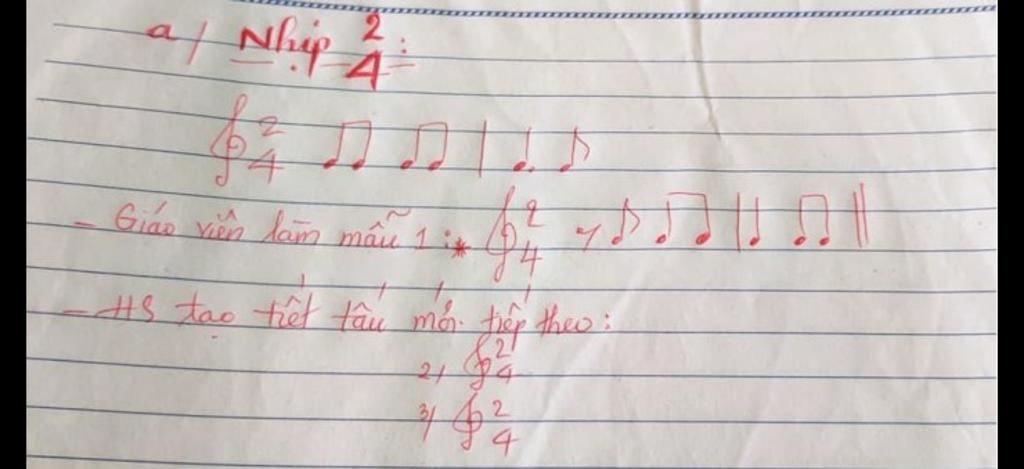 a/ Nhịp 2/4:
2/4
- Giáo viên làm mẫu 1: * 2/4
- HS tạo tiết tấu mới tiếp theo:
2/ 2/4
3/ 2/4